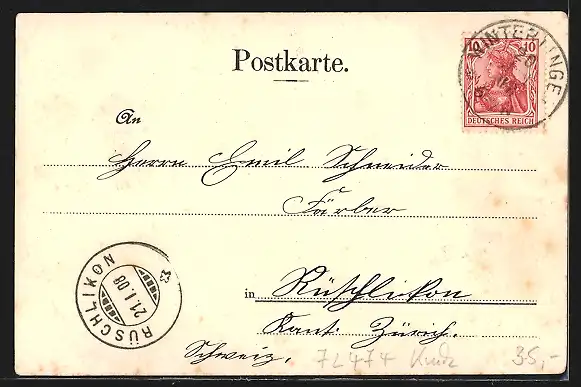 Postkarte.
WINTERLINGE
10 10
DEUTSCHES REICH
An
Herrn Emil Schneider
Färber
in Rüschlikon
Kant. Zürich.
Schweiz.
RÜSCHLIKON
21.I.08
35,-